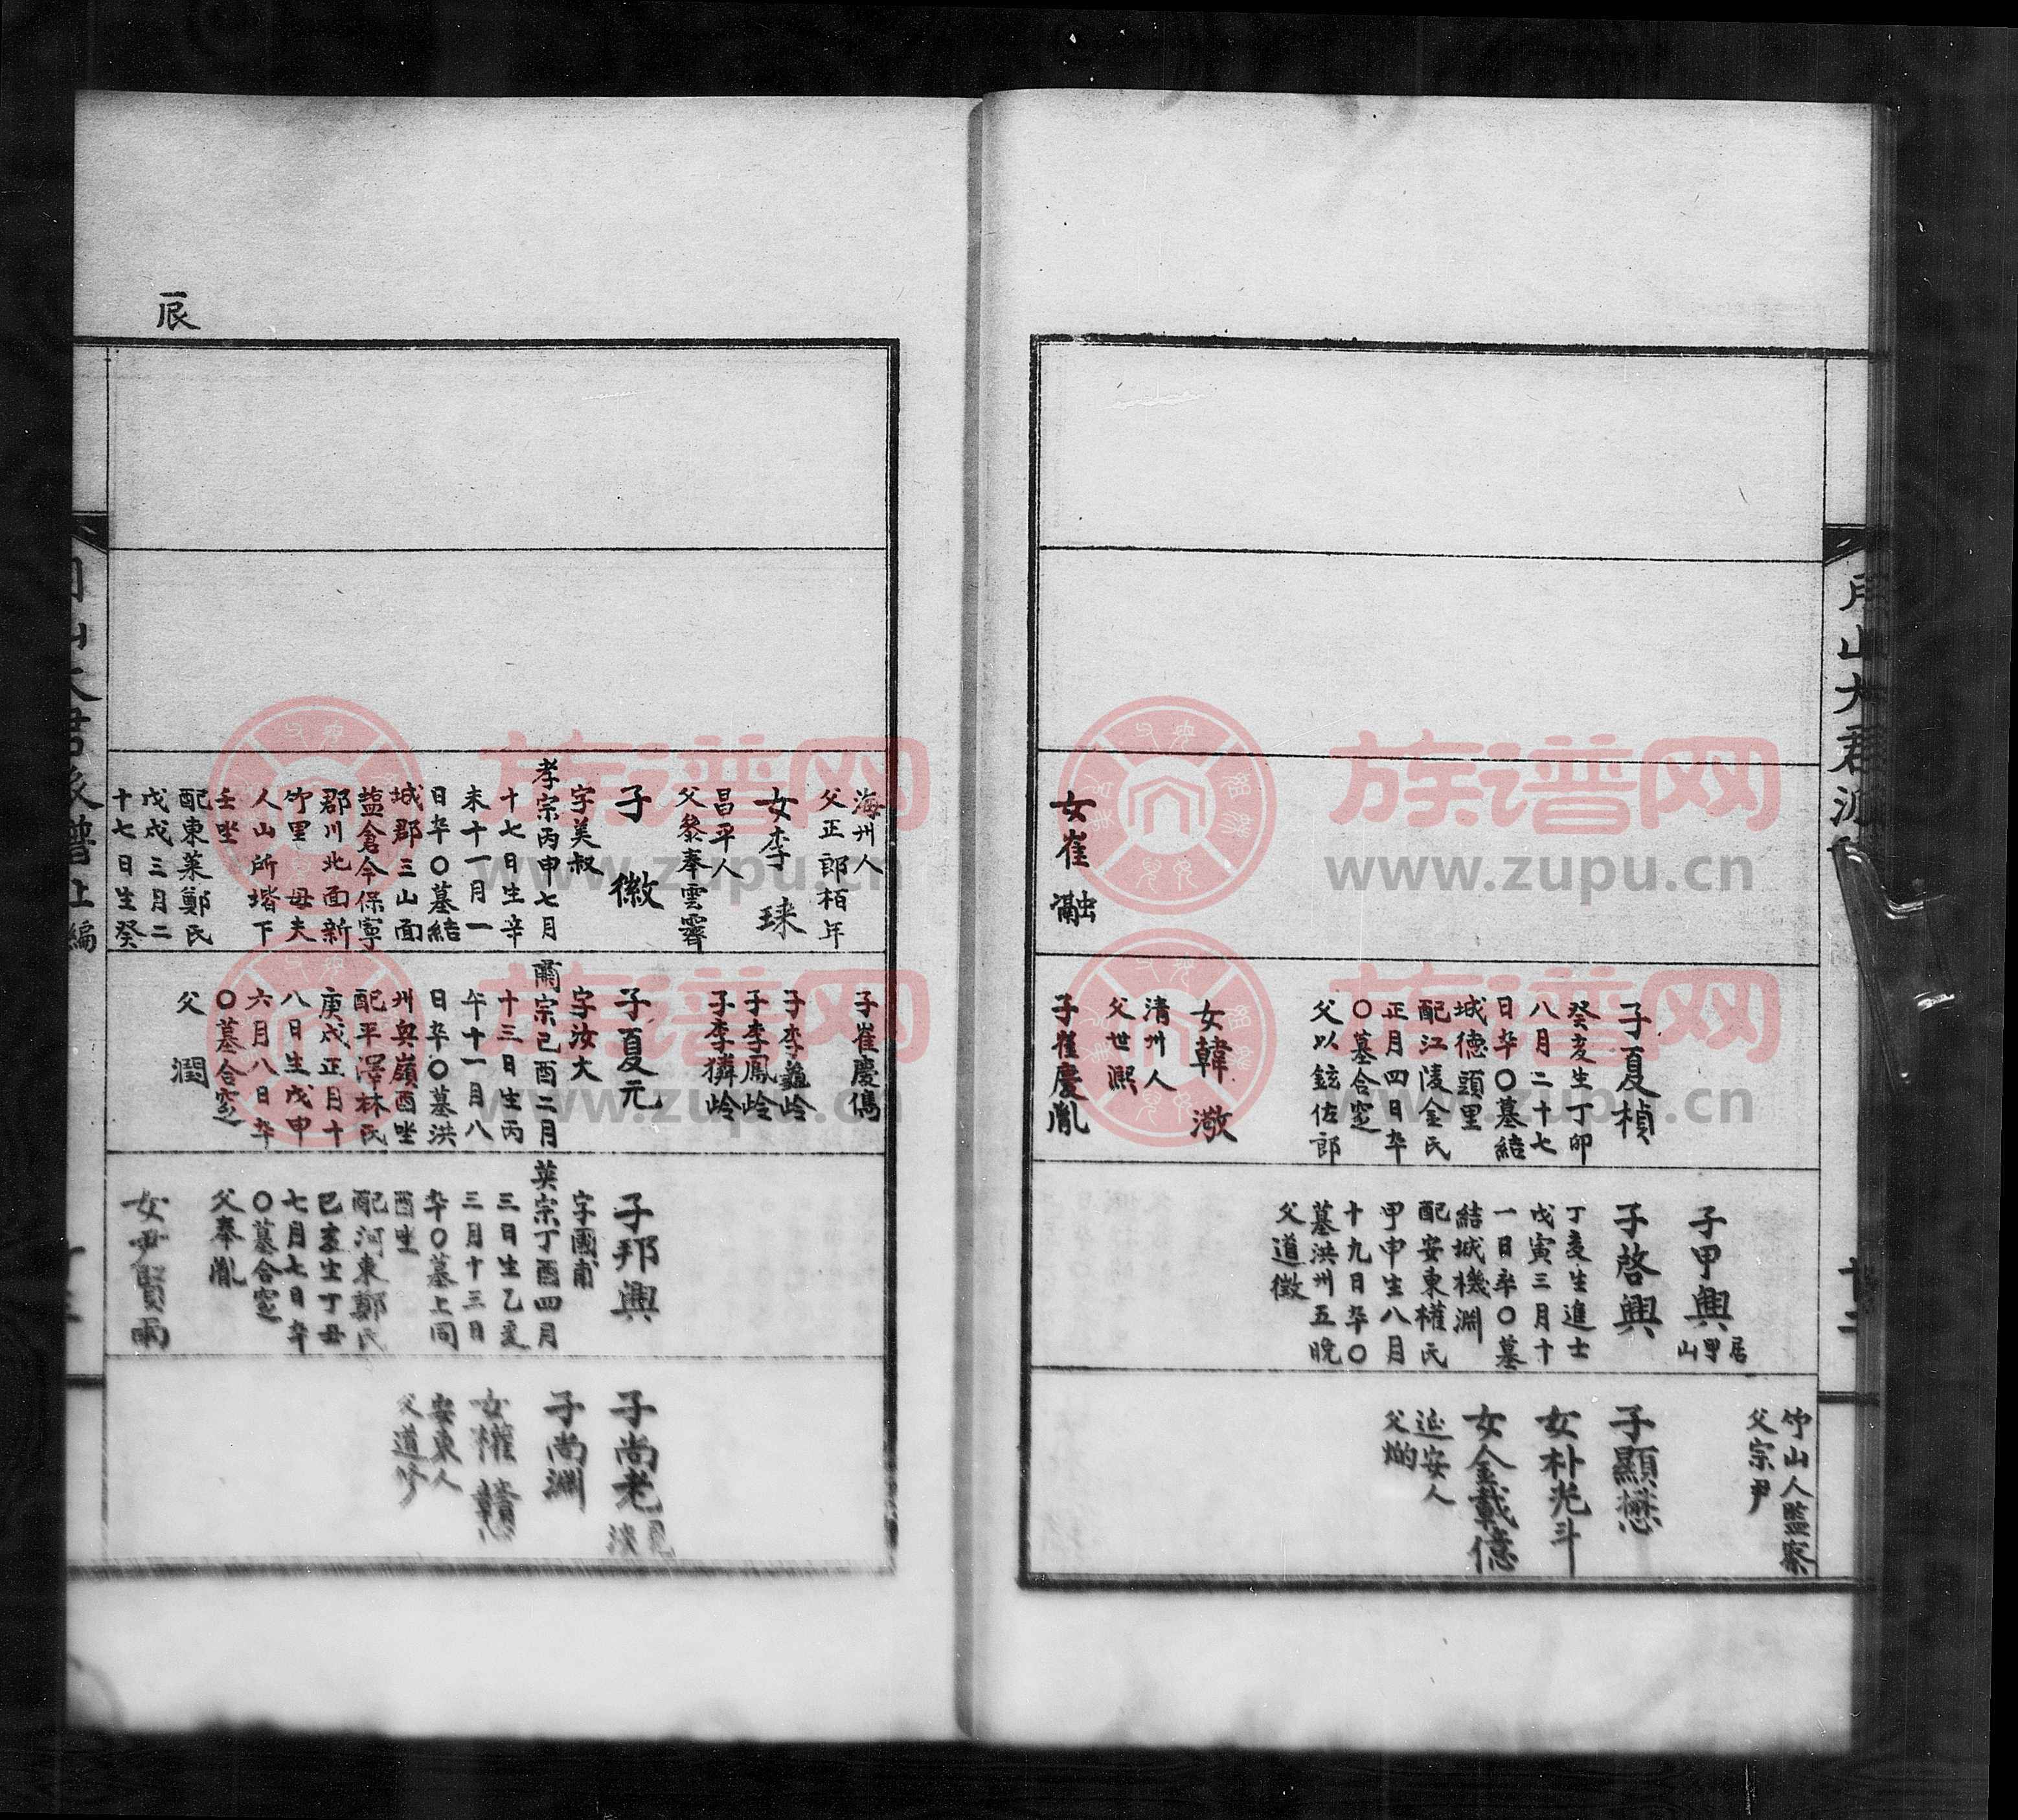 竹山人監察
父宗尹
子甲興
居
甲
山
子啓興
丁亥生進士
戊寅三月十
一日卒〇墓
結城機淵
配安東權氏
甲申生八月
十九日卒〇
墓洪州五晚
父道徵
子顯懋
女朴光斗
女金載億
延安人
父
子夏楨
癸亥生丁卯
八月二十七
日卒〇墓結
城德頭里
配江陵金氏
正月四日卒
〇墓合窆
父以鉉佐郎
女韓 激
清州人
父世熙
女崔 瀜
子崔慶胤
海州人
父正郎栢年
子崔慶儁
女李 琜
昌平人
父叅奉雲霽
子李龜岭
子李鳳岭
子李獜岭
子 徽
字美叔
孝宗丙申七月
十七日生辛
未十一月一
日卒〇墓結
城郡三山面
盐倉今保寧
郡川北面新
竹里 母夫
人山所堦下
壬坐
配東萊鄭氏
戊戌三月二
十七日生癸
子夏元
字汝大
肅宗己酉二月
十三日生丙
午十一月八
日卒〇墓洪
州奥嶺酉坐
配平澤林氏
庚戌正月十
八日生戊申
六月八日卒
〇墓合窆
父 潤
子邦興
字國甫
英宗丁酉四月
三日生乙亥
三月十三日
卒〇墓上同
酉坐
配河東鄭氏
己亥生丁丑
七月七日卒
〇墓合窆
父奉胤
女尹賢雨
子尚老
子尚淵
女權
安東人
父道
辰
族谱网
www.zupu.cn
族谱网
www.zupu.cn
族谱网
www.zupu.cn
族谱网
www.zupu.cn